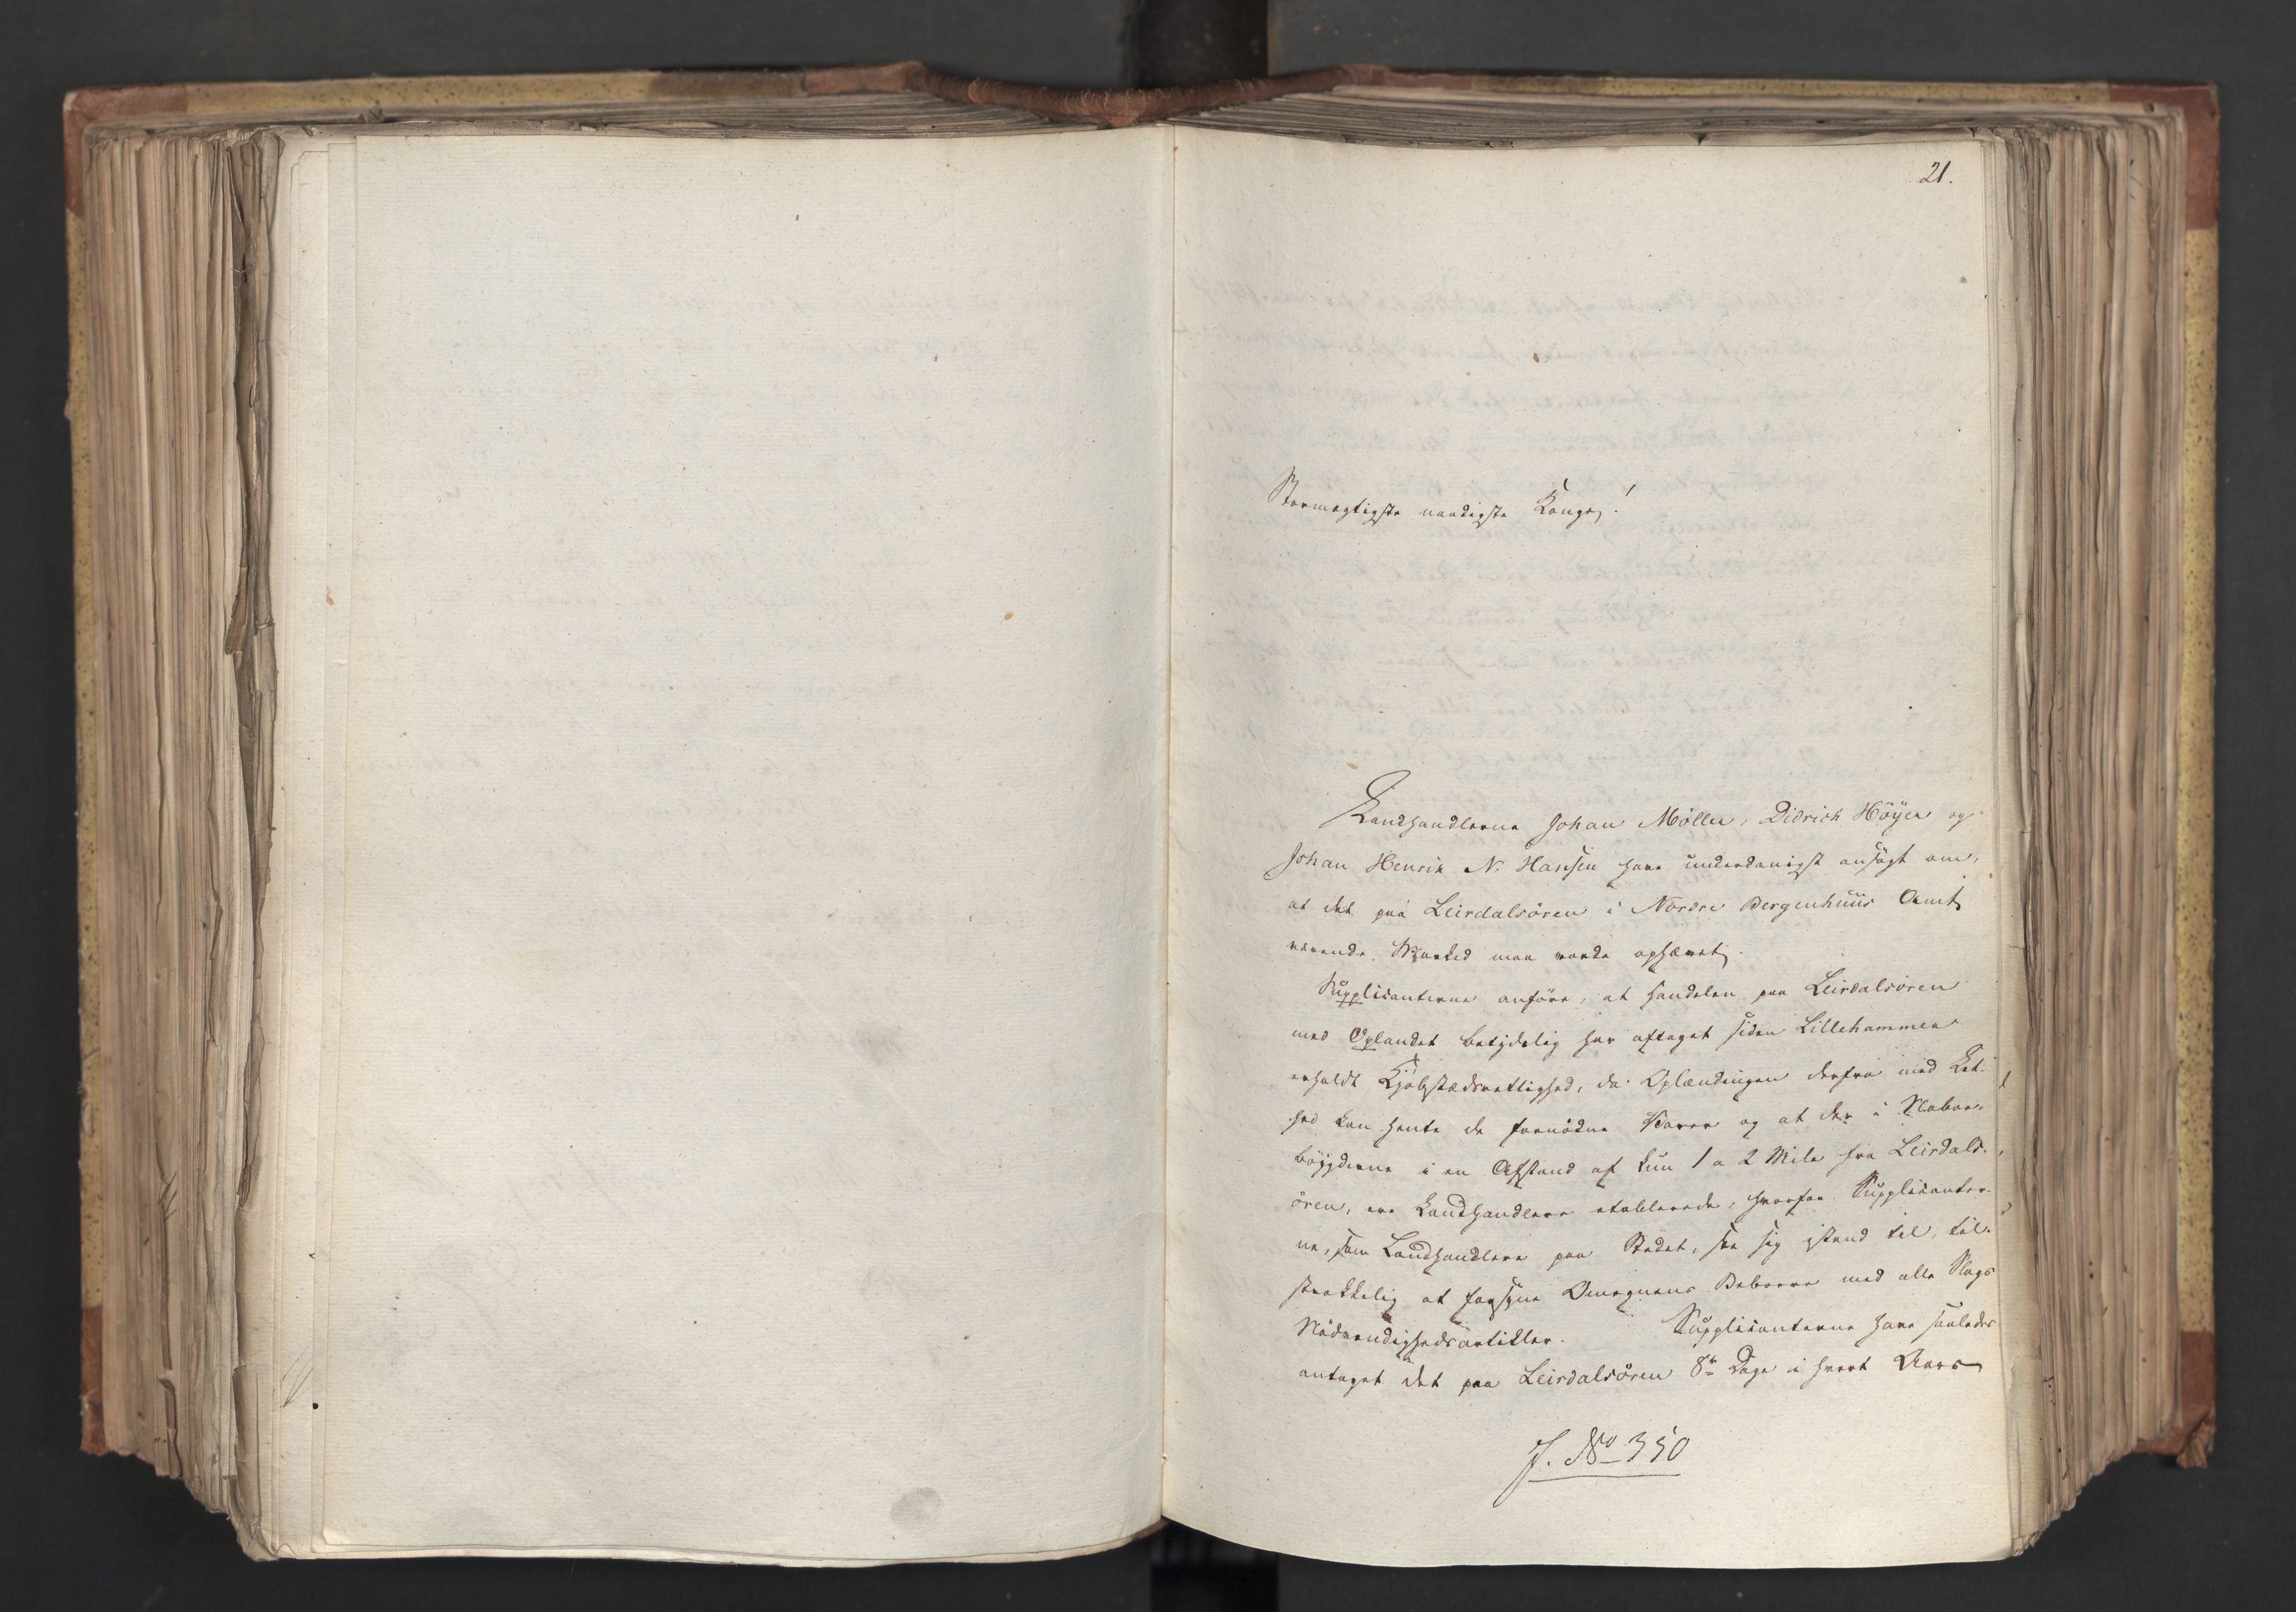 21.
Stormægtigste naadigste Konge!
Landhandlerne Johan Møller, Didrich Höyer og
Johan Henrik N. Hansen have underdanigst ansøgt om,
at det paa Leirdalsören i Nordre Bergenhuus Amt
værende Marked maa vorde ophævet.
Supplicanterne anföre, at Handelen paa Leirdalsören
med Oplandet betydelig har aftaget siden Lillehammer
erholdt Kjöbstædsrettighed, da Oplændingen derfra med Let-
hed kan hente de fornödne Varer og at der i Naboe-
böygderne i en Afstand af kun 1 a 2 Mile fra Leirdals-
ören, ere Landhandlere etablerede, hvorfor Supplicanter-
ne, som Landhandlere paa Stedet, see sig istand til, til-
strækkelig at forsyne Omegnens Beboere med alle Slags
Nödvendighedsartikler. Supplicanterne have saaledes
antaget det paa Leirdalsören 8te Dage i hvert Aars
J. No 350